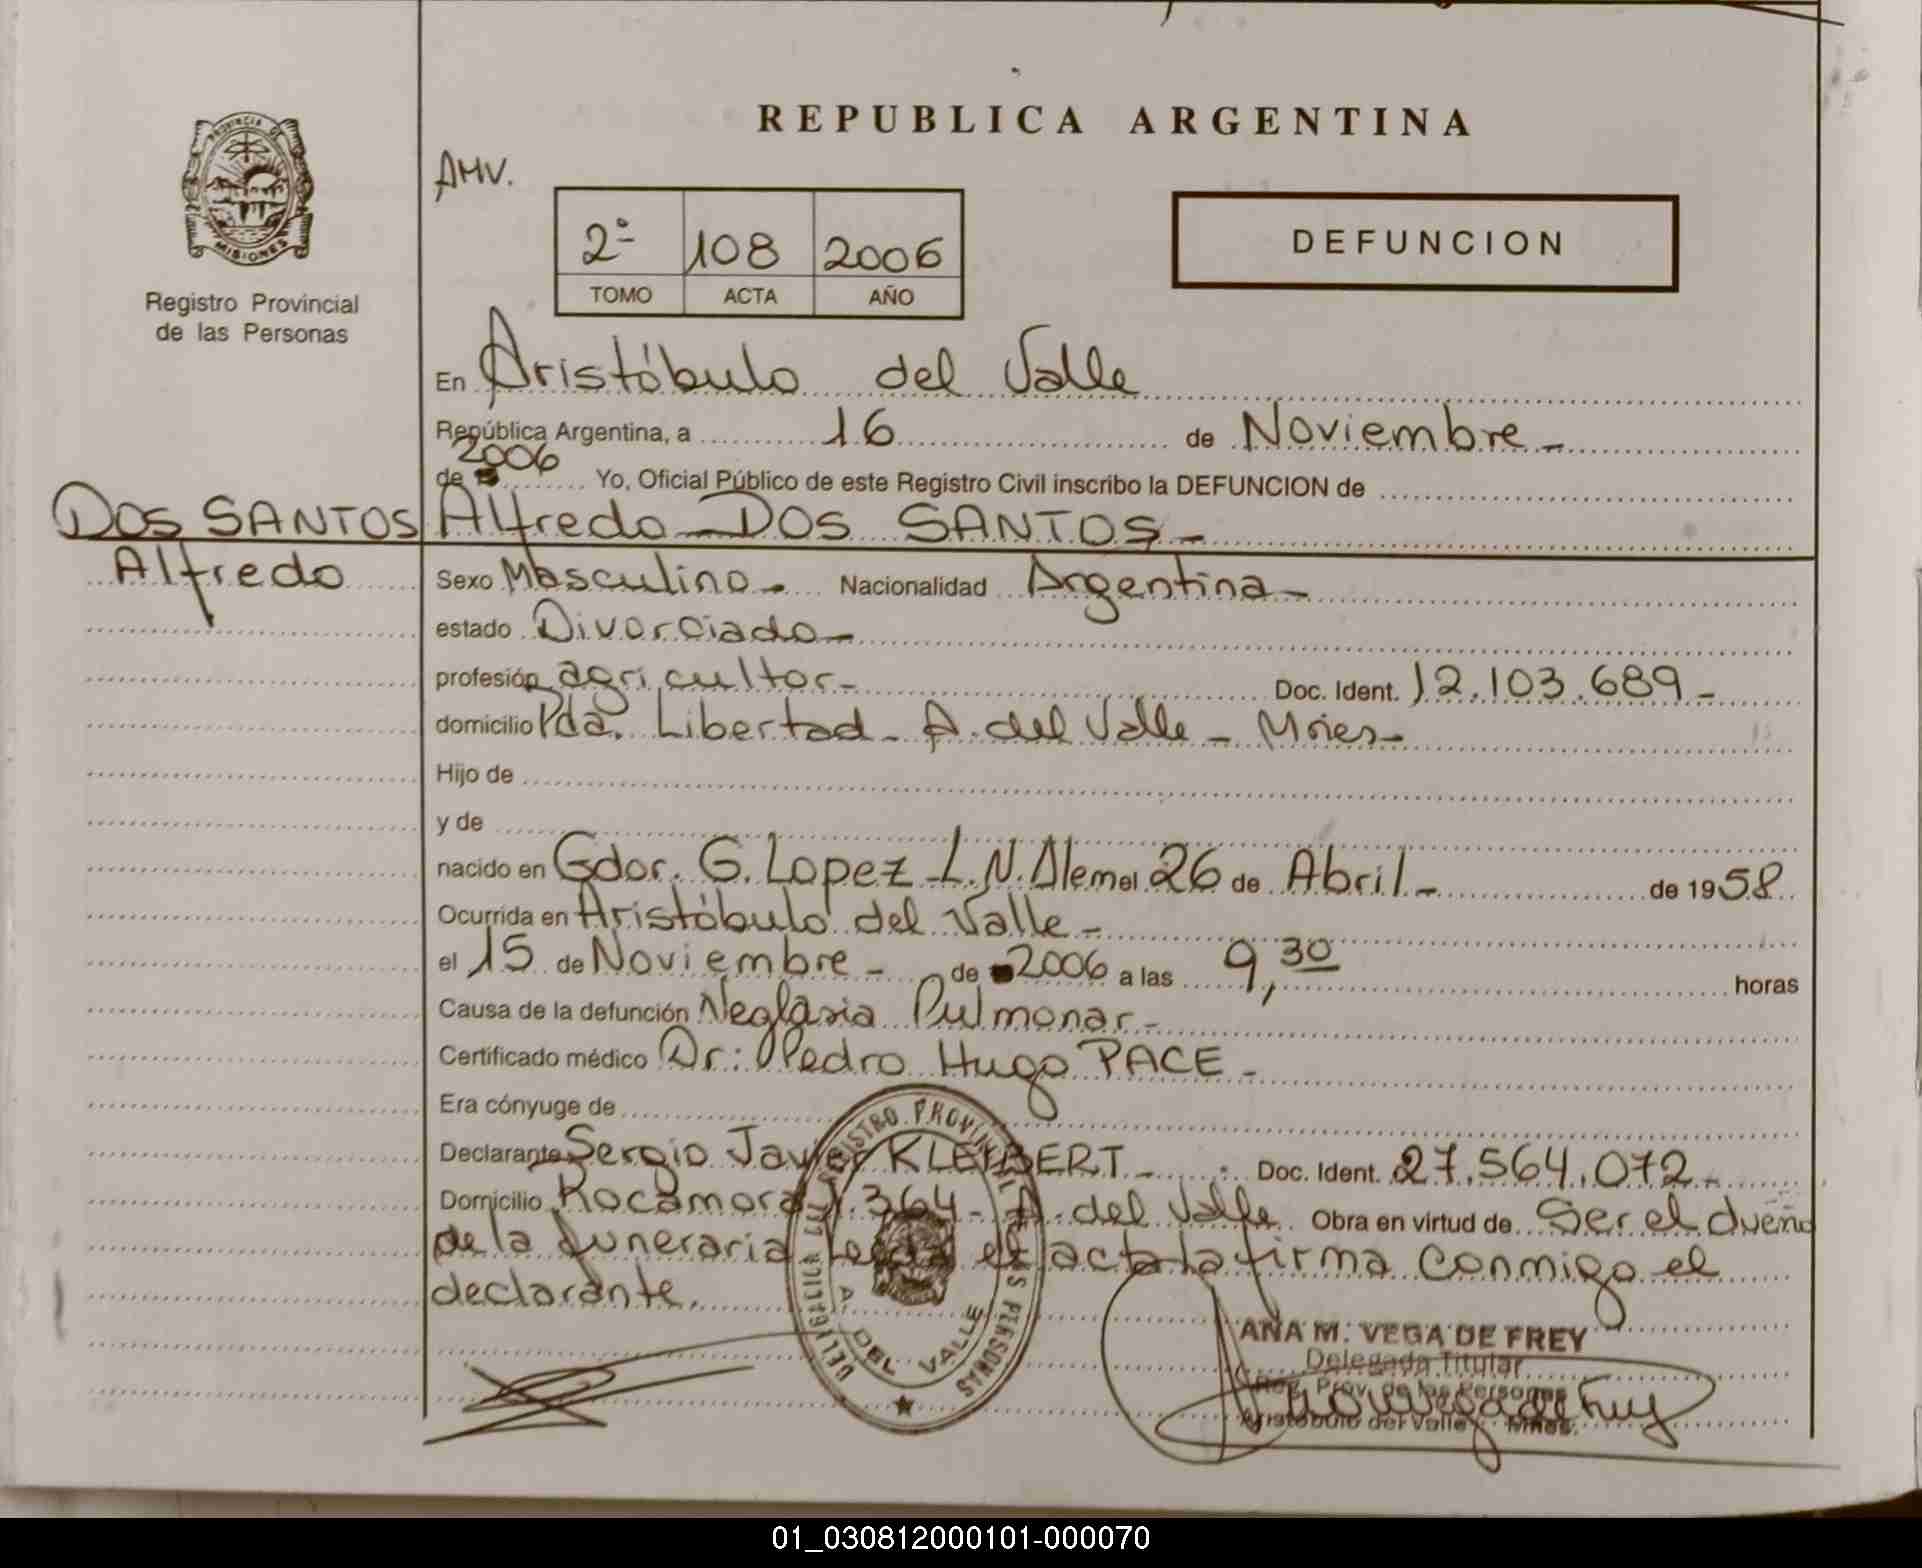 REPUBLICA ARGENTINA
PROVINCIA DE
MISIONES
Registro Provincial
de las Personas
AMV.
2º 108 2006
TOMO ACTA AÑO
DEFUNCION
En Aristóbulo del Valle
República Argentina, a 16 de Noviembre -
de 2006 Yo, Oficial Público de este Registro Civil inscribo la DEFUNCION de
DOS SANTOS
Alfredo
Alfredo - DOS SANTOS -
Sexo Masculino - Nacionalidad Argentina -
estado Divorciado -
profesión agricultor - Doc. Ident. 12.103.689 -
domicilio Pda. Libertad - A. del Valle - Mnes -
Hijo de
y de
nacido en Gdor. G. Lopez - L. N. Alem el 26 de Abril - de 1958
Ocurrida en Aristóbulo del Valle -
el 15 de Noviembre - de 2006 a las 9,30 horas
Causa de la defunción Neglasia Pulmonar -
Certificado médico Dr: Pedro Hugo PACE -
Era cónyuge de
Declarante Sergio Javier KLEIBERT - Doc. Ident. 27.564.072 -
Domicilio Rocamora 1.364 - A. del Valle Obra en virtud de Ser el dueño
de la funeraria Leida el acta la firma conmigo el
declarante.
A. DEL VALLE
ANA M. VEGA DE FREY
Delegada Titular
Reg. Prov. de las Personas
Aristóbulo del Valle - Mnes.
01_030812000101-000070